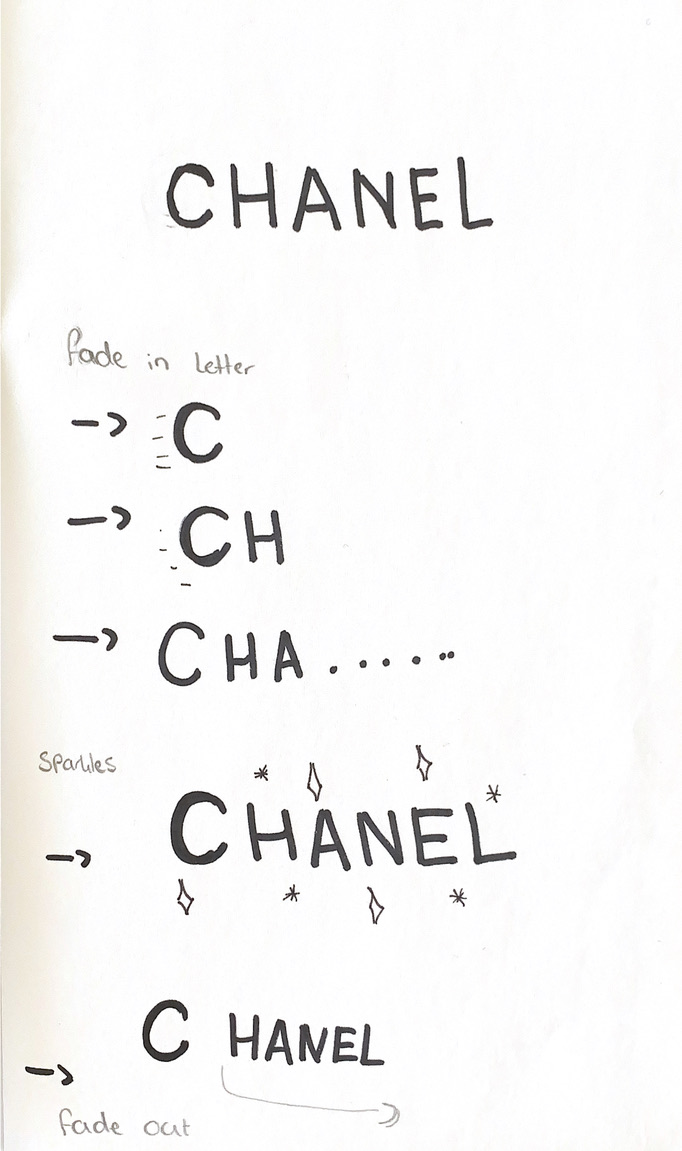 CHANEL
fade in letter
-> C
-> CH
-> CHA.......
Sparkles
-> CHANEL
C HANEL
->
fade out